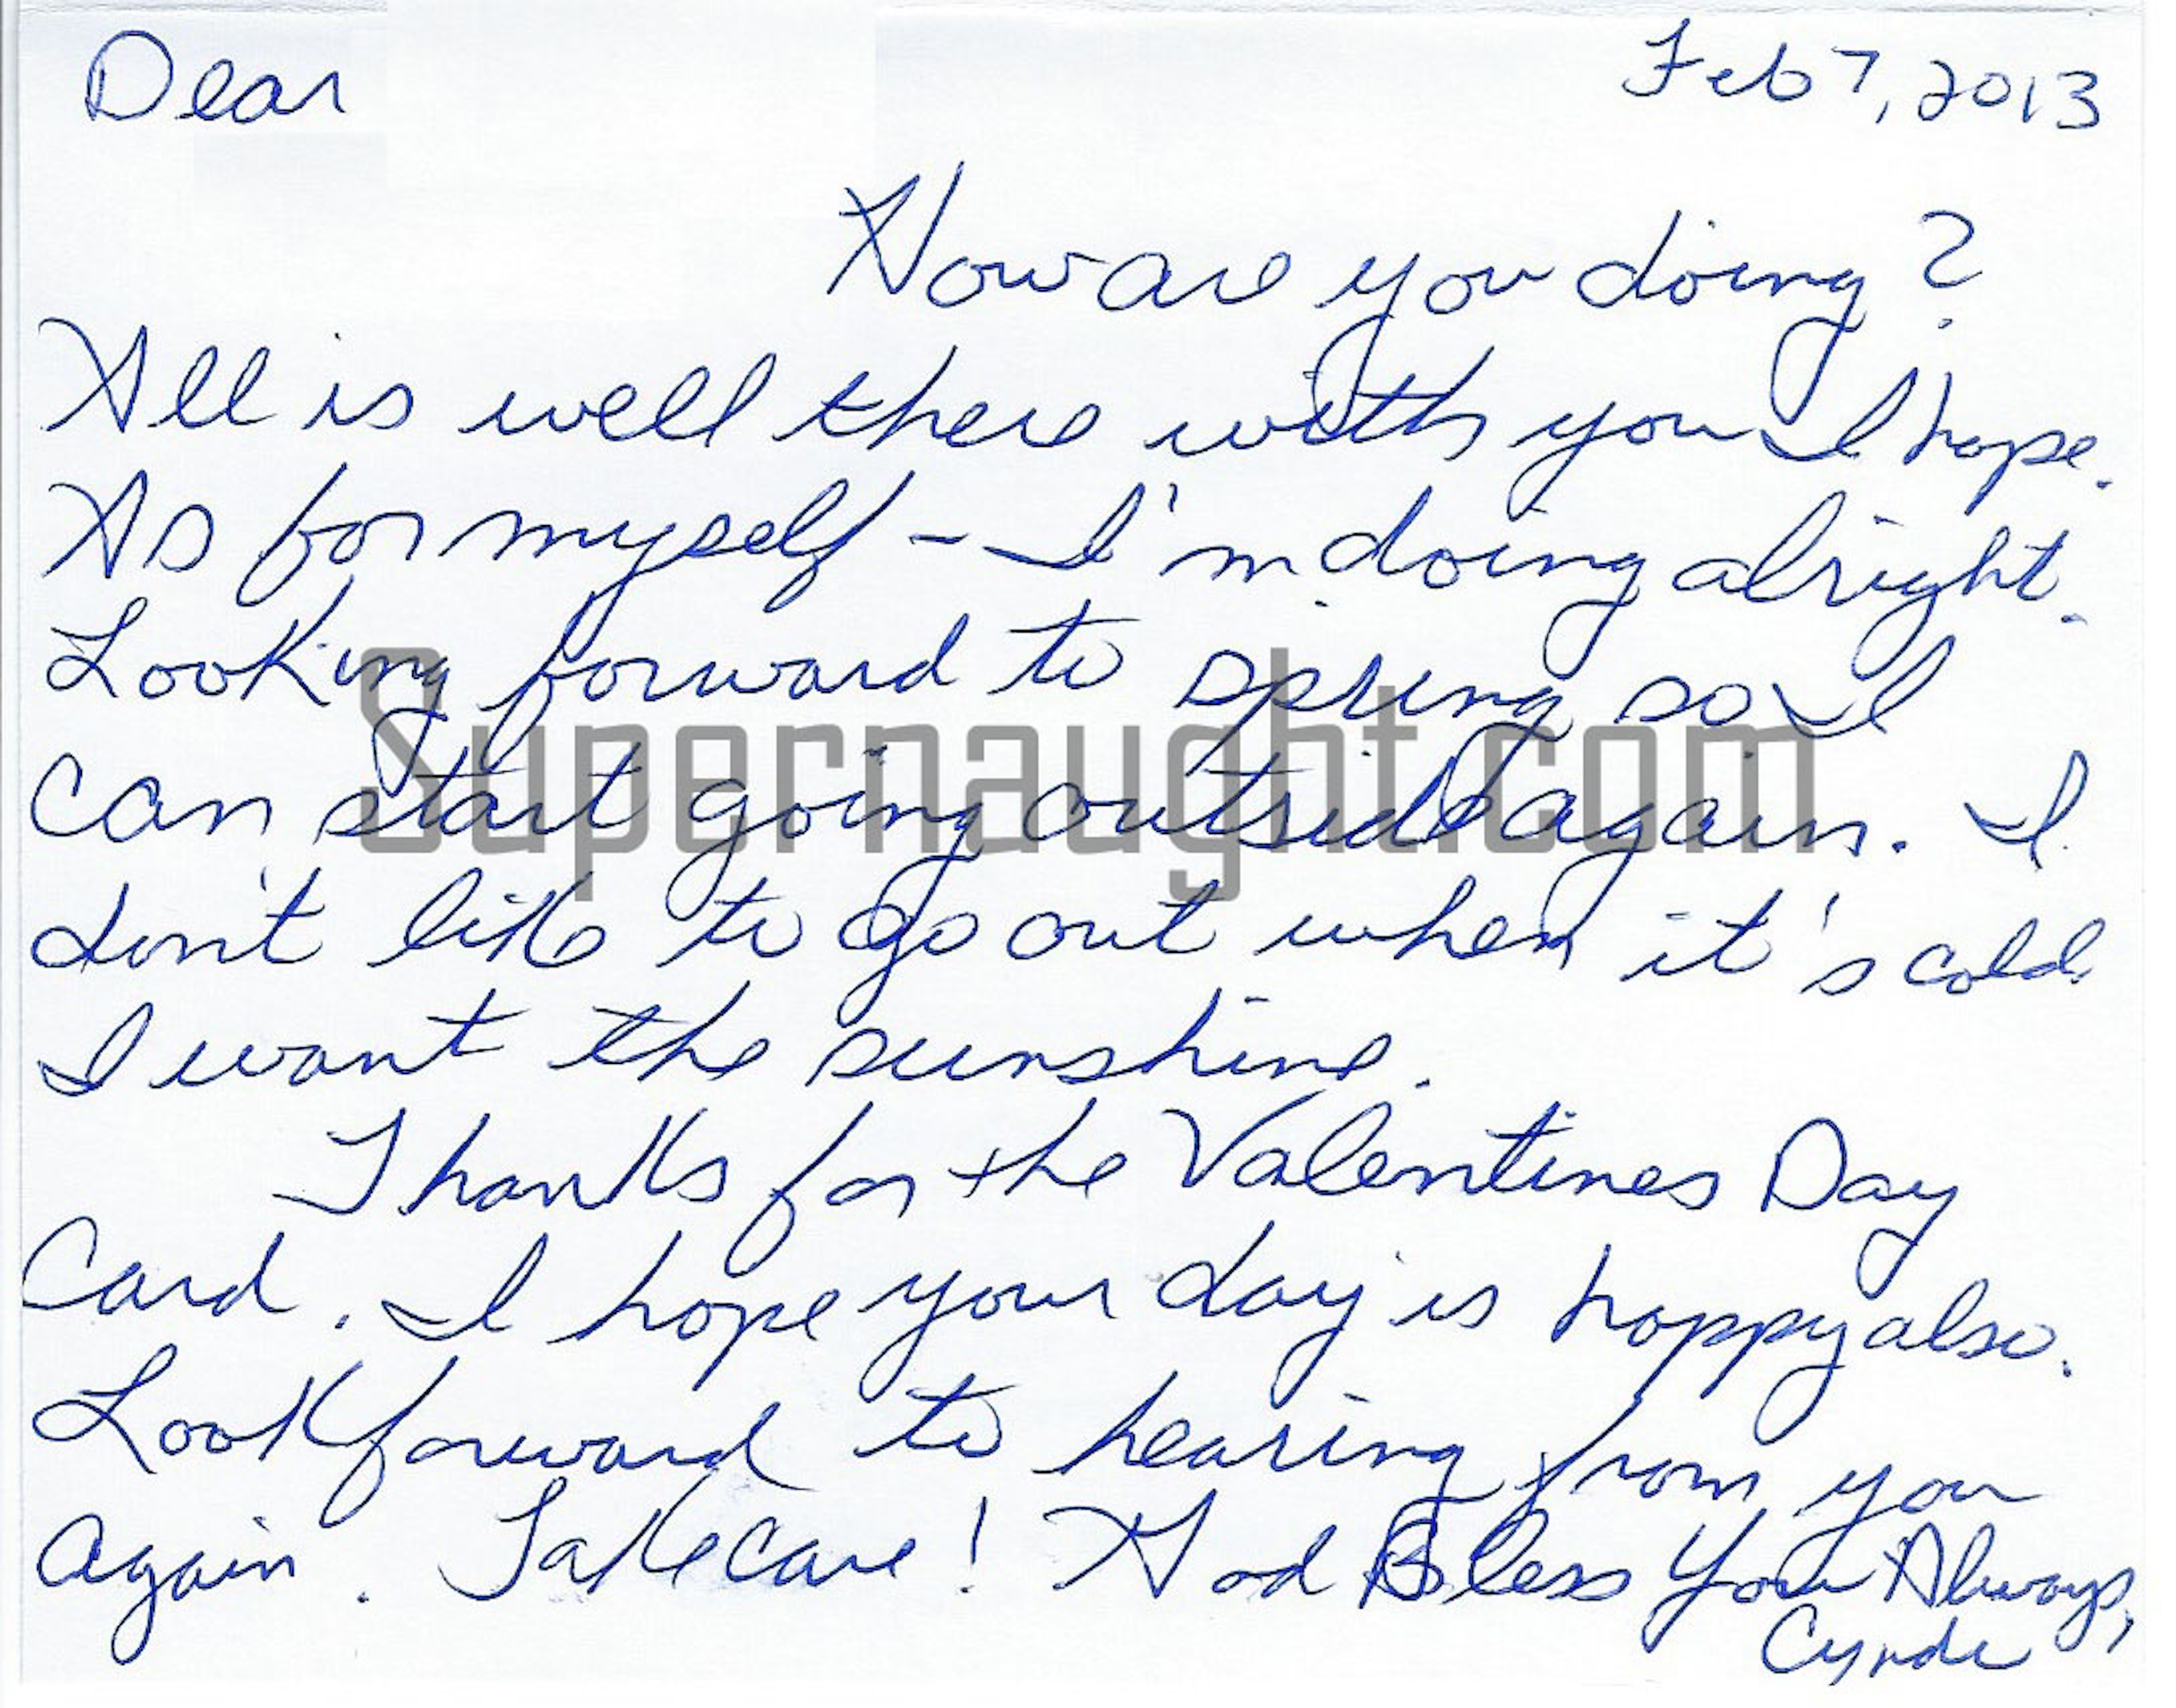 Dear
Feb 7, 2013
How are you doing?
All is well there with you I hope.
As for myself - I'm doing alright.
Looking forward to spring so I
Supernaught.com
can start going outside again. I
don't like to go out when it's cold.
I want the sunshine.
Thanks for the Valentines Day
Card. I hope your day is happy also.
Look forward to hearing from you
again. Take care! God Bless You Always,
Cynde